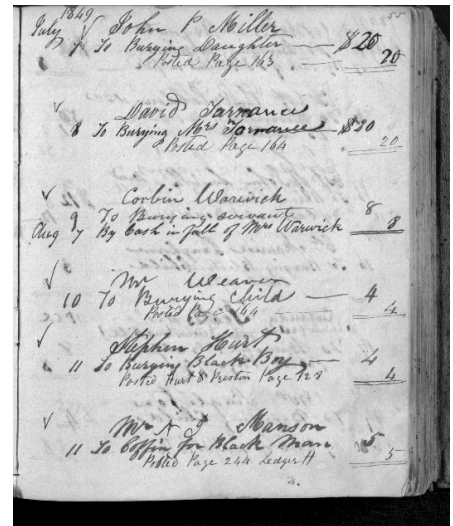 1849
July John P Miller
7 To Burying Daughter $20
Posted Page 163 20
David Tarrance
8 To Burying Mrs Tarrance $20
Posted Page 164 20
Corbin Warwick
9 To Burying servant 8
Aug 7 By Cash in full of Mrs Warwick 8
Mr Weaver
10 To Burying Child 4
Posted Page 164 4
Stephen Hurt
11 To Burying Black Boy 4
Posted Hurt & Preston Page 128 4
Mr N Manson
11 To Coffin for Black Man 5
Posted Page 244 Ledger H 5